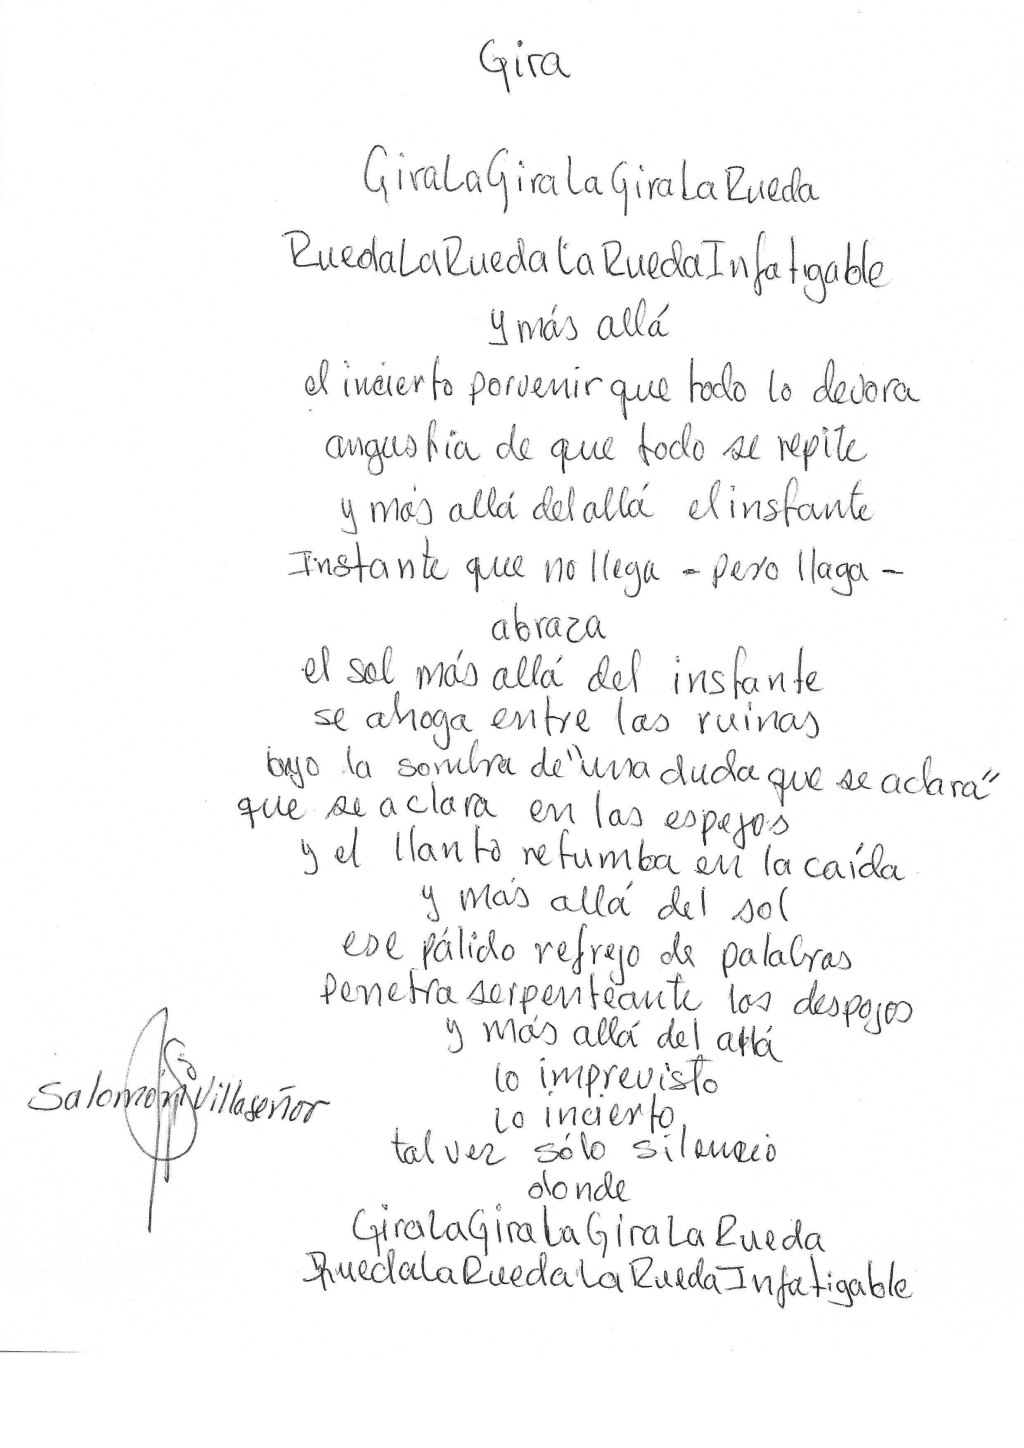 Gira
GiraLaGiraLaGiraLaRueda
RuedaLaRuedaLaRuedaInfatigable
y más allá
el incierto porvenir que todo lo devora
angustia de que todo se repite
y más allá del allá el instante
Instante que no llega - pero llaga -
abraza
el sol más allá del instante
se ahoga entre las ruinas
bajo la sombra de "una duda que se aclara"
que se aclara en las espejos
y el llanto retumba en la caída
y más allá del sol
ese pálido refrejo de palabras
Penetra serpenteante los despojos
y más allá del allá
lo imprevisto
lo incierto
tal vez sólo silencio
donde
GiraLaGiraLaGiraLaRueda
RuedaLaRuedaLaRuedaInfatigable
Salomón Villaseñor